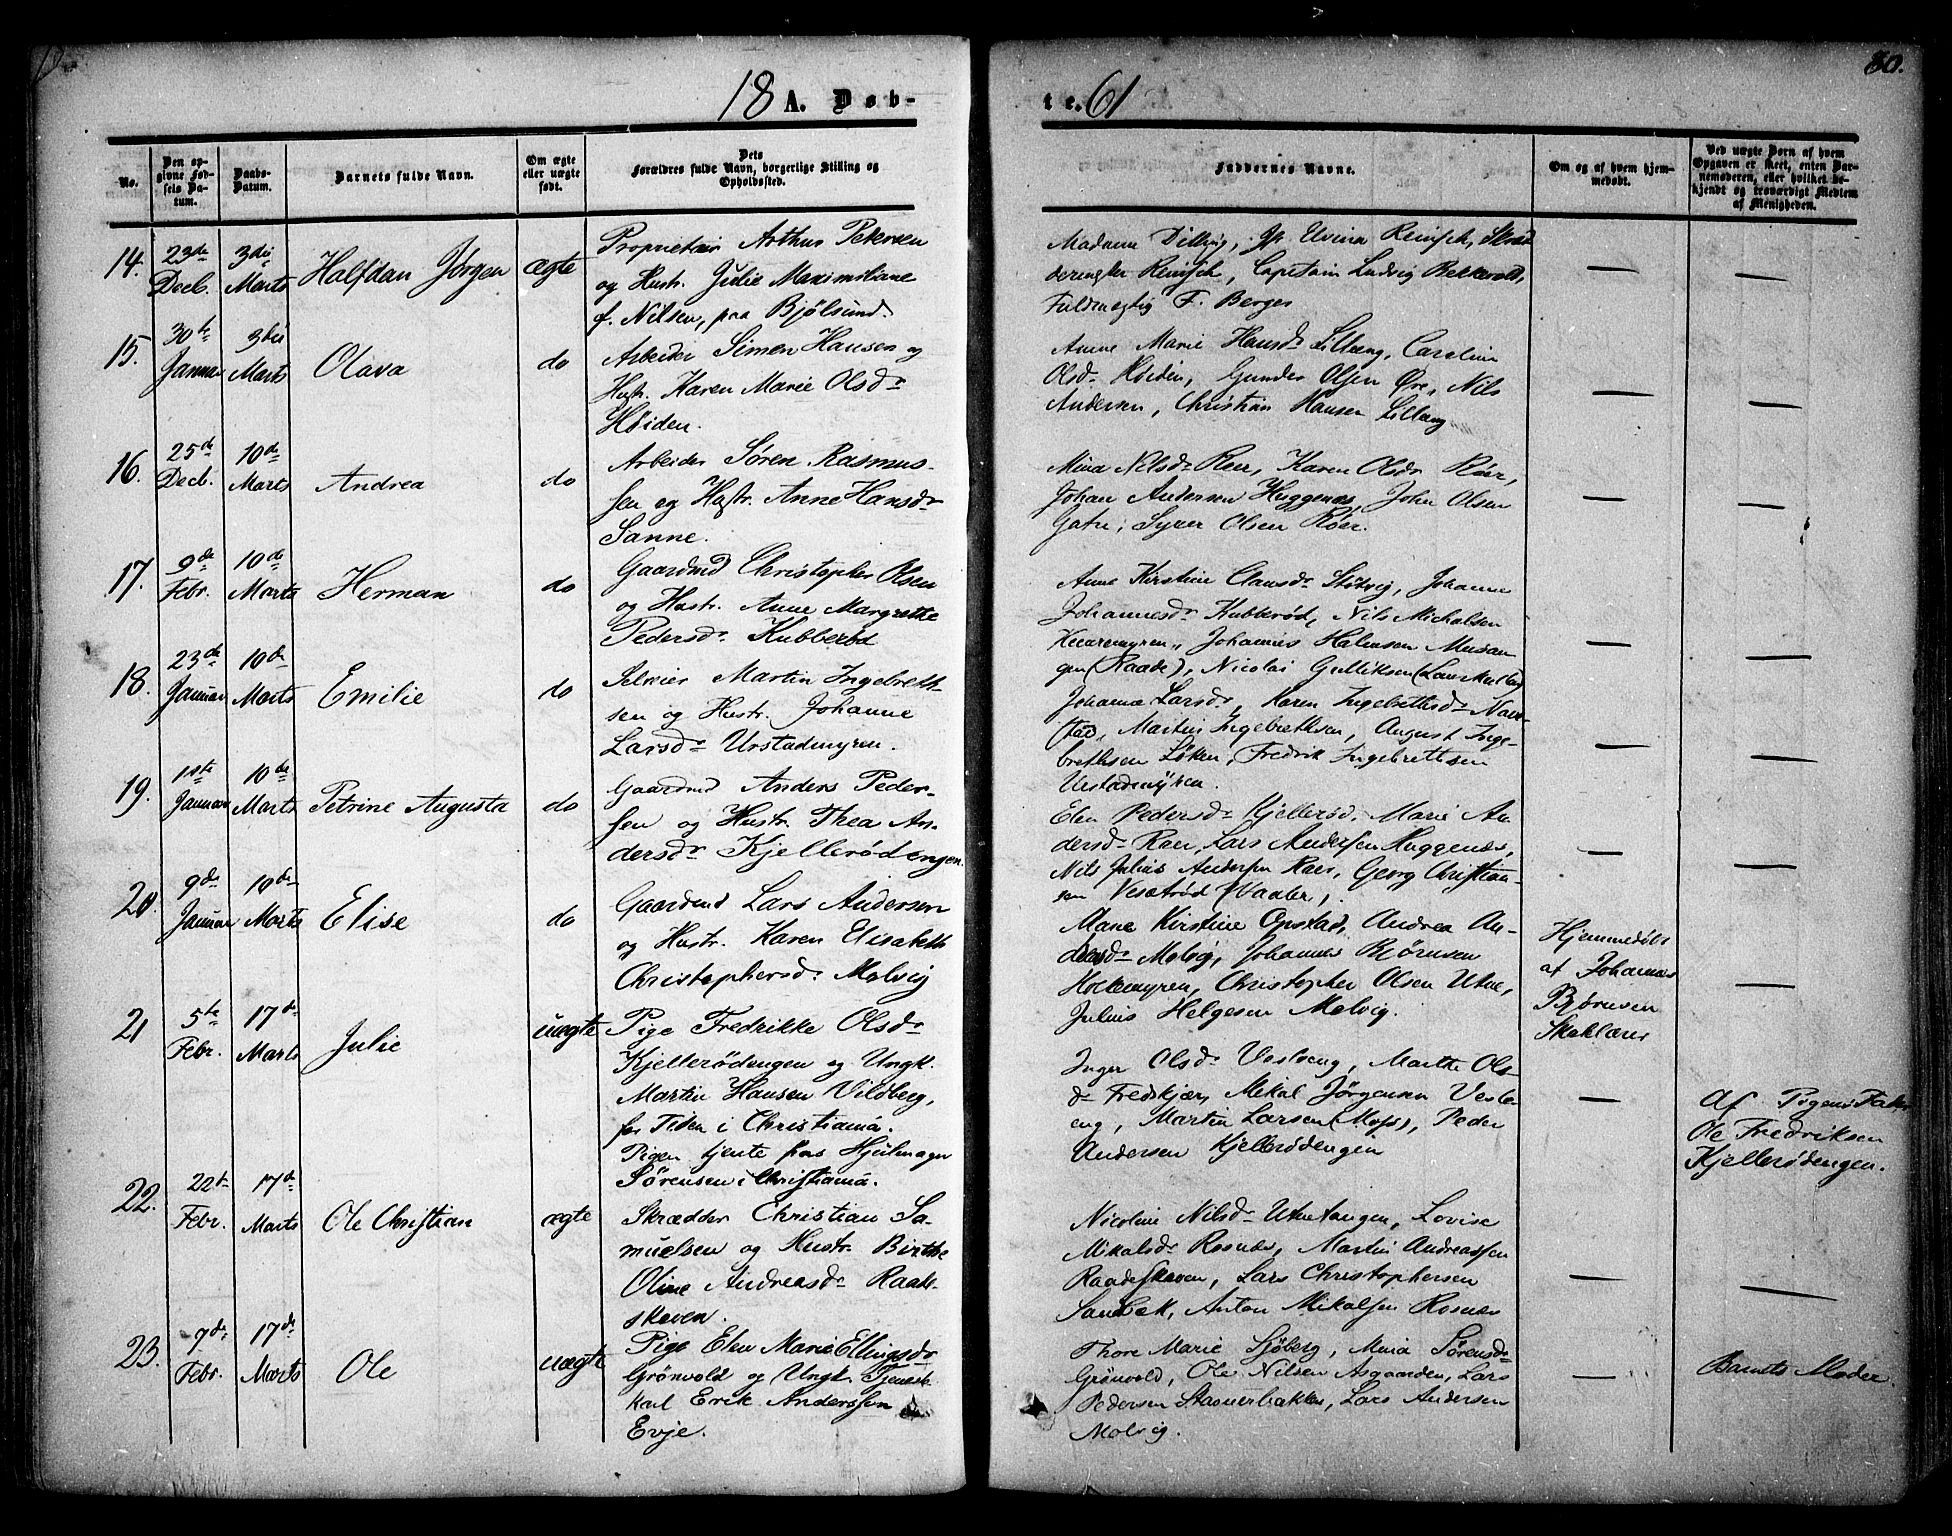 80.
18 A. Døb-
te. 61
No.
Den opgivne Fødsels Datum.
Daabs-Datum.
Barnets fulde Navn.
Om ægte eller uægte født.
Dets Forældres fulde Navn, borgerlige Stilling og Opholdssted.
Faddernes Navne.
Om og af hvem hjemmedøbt.
Ved uægte Børn af hvem Opgaven er skeet, enten Barnemoderen, eller hvilket bekjendt og troværdigt Medlem af Menigheden.
14. 23de Decb. 3die Marts Halfdan Jørgen ægte
Proprietair Arthur Petersen
og Hustr. Julie Maximiliane
f. Nilsen, paa Bjølsund.
Madame Dilling, Jfr. Elvina Reinsch,
Reinsch, Capitain Ludvig Bekkevold,
Fuldmægtig F. Berger
—
—
15. 30te Januar 3die Marts Olava do
Arbeider Simen Hansen og
Hustr. Karen Marie Olsdr
Høiden.
Anne Marie Hansdr Lillæng, Caroline
Olsdr Høiden, Gunder Olsen Øre, Nils
Andersen, Christian Hansen Lillæng
—
—
16. 25de Decb. 10de Marts Andrea do
Arbeider Søren Rasmus-
sen og Hustr. Anne Hansdr
Sanne.
Mina Nilsdr Roer, Karen Olsdr Röer,
Johan Andersen Huggenæs, John Olsen
Gatu, Syver Olsen Röer.
—
—
17. 9de Febr. 10de Marts Herman do
Gaardmd Christopher Olsen
og Hustr. Anne Margrethe
Pedersdr Kubberød
Anne Kirstine Clausdr Støtvig, Johanne
Johannesdr Kubberød, Nils Michalsen
Kværemyren, Johannes Halvorsen
(Raade), Nicolai Gulliksen
—
—
18. 23de Januar 10de Marts Emilie do
Selveier Martin Ingebreth-
sen og Hustr. Johanne
Larsdr Urstadmyren.
Johanna Larsdr, Karen Ingebrethsdr Nav-
stad, Martin Ingebrethsen, August Inge-
brethsen Løken, Fredrik Ingebrethsen
Urstadmyren.
—
—
19. 1ste Januar 10de Marts Petrine Augusta do
Gaardmd Anders Peder-
sen og Hustr. Thea An-
dersdr Kjellerødengen.
Elen Pedersdr Kjellerød, Marie An-
dersdr Roer, Lars Andersen Huggenæs,
Nils Julius Andersen Roer, Georg Christian-
sen Vesetrød (Vaaler),
—
—
20. 9de Januar 10de Marts Elise do
Gaardmd Lars Andersen
og Hustr. Karen Elisabeth
Christophersdr Molvig
Maren Kirstine Opstad, Andrea An-
dersdr Molvig, Johannes Bjørnsen
Holkemyren, Christopher Olsen Utne,
Julius Helgesen Molvig.
Hjemmedöbt
af Johannes
Bjørnsen
Skolelærer
—
21 5te Febr. 17de Marts Julie uægte
Pige Fredrikke Olsdr
Kjellerödengen og Ungk.
Martin Hansen Vildberg,
for Tiden i Christiania.
Pigen tjente hos Hjulmager
Sörensen i Christiania.
Inger Olsdr Vesleeng, Marthe Ols-
dr Fredskjær, Mekal Jørgensen Vesle-
eng, Martin Larsen (Moss), Peder
Andersen Kjellerödengen
—
Af Pigens Fader
Ole Fredriksen
Kjellerödengen.
22. 22de Febr. 17de Marts Ole Christian ægte
Skrædder Christian Sa-
muelsen og Hustr. Birthe
Oline Andreasdr Raade-
skoven.
Nicoline Nilsdr Utnetangen, Lovise
Mikalsdr Rosnæs, Martin Andreassen
Raadeskoven, Lars Christophersen
Sandbæk, Anton Mikalsen Rosnæs
—
—
23. 7de Febr. 17de Marts Ole uægte
Pige Elen Marie Ellingsdr
Grönvold og Ungk. Tjeneste-
karl Erik Anderssen
Evje.
Thore Marie Sjöberg, Mina Sörensdr
Grönvold, Ole Nilsen Asgaarden, Lars
Pedersen, Lars Andersen
Molvig.
—
Barnets Moder.